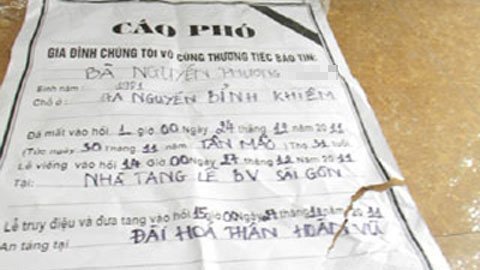 CÁO PHÓ
GIA ĐÌNH CHÚNG TÔI VÔ CÙNG THƯƠNG TIẾC BÁO TIN:
BÀ NGUYỄN PHƯƠNG
Sinh năm:
Chỗ ở: NGUYỄN BỈNH KHIÊM
Đã mất vào hồi 1 giờ 00 Ngày 24 tháng 12 năm 2011
(Tức ngày 30 tháng 11 năm TÂN MÃO) Thọ tuổi.
Lễ viếng vào hồi 14 Giờ 00 Ngày 27 tháng 12 Năm 2011
Tại: NHÀ TANG LỄ BV SÀI GÒN
Lễ truy điệu và đưa tang vào hồi 15 giờ 00 Ngày 27 tháng 12 năm 2011
An táng tại ĐÀI HOÁ THÂN HOÀN VŨ